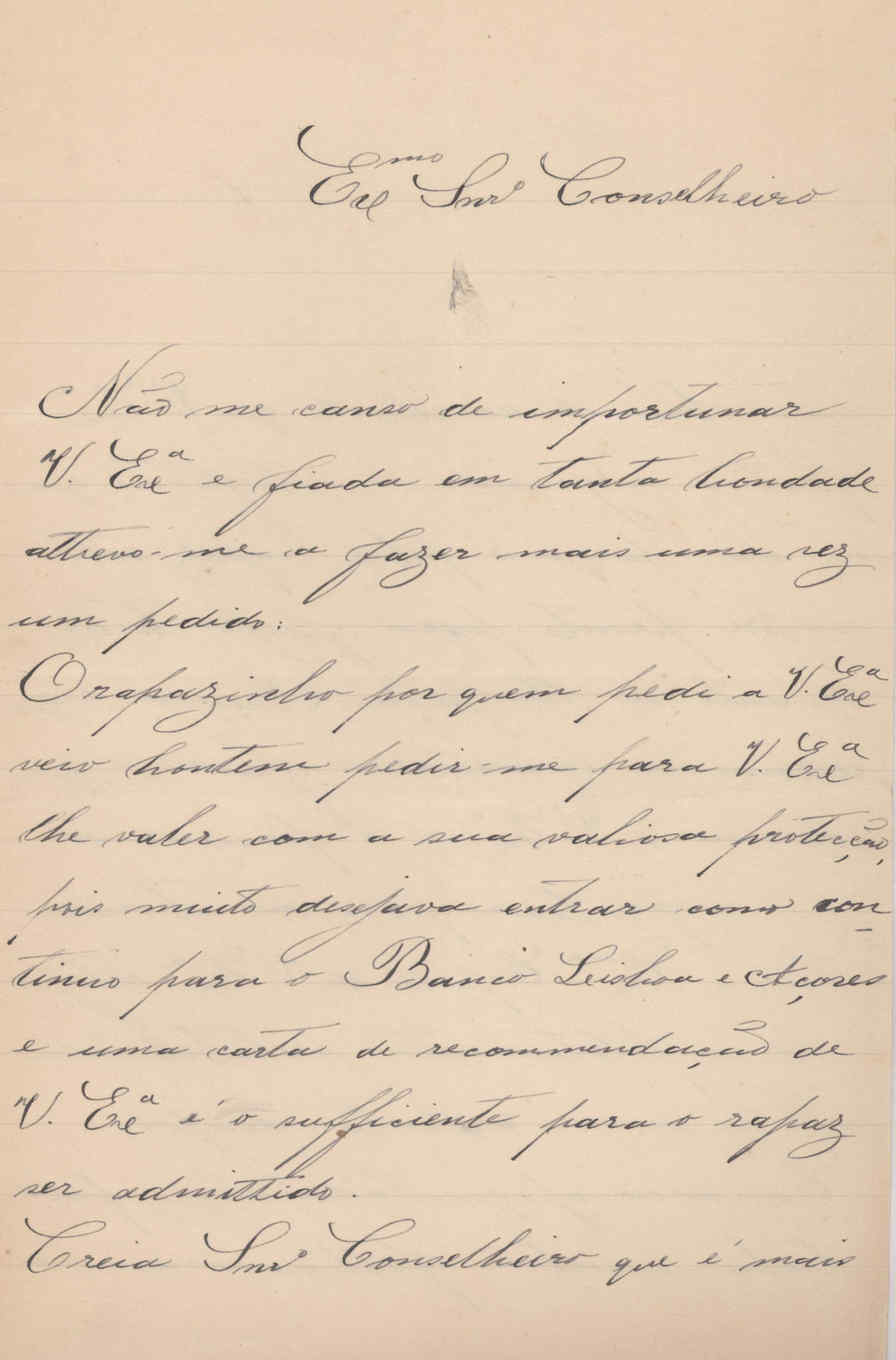 Exmo Snr. Conselheiro
Não me canso de importunar
V. Exa e fiada em tanta bondade
attrevo-me a fazer mais uma vez
um pedido:
O rapazinho por quem pedi a V. Exa
veio hontem pedir-me para V. Exa
lhe valer com a sua valiosa protecção,
pois muito desejava entrar como con
tinuo para o Banco Lisboa e Açores
e uma carta de recommendação de
V. Exa é o sufficiente para o rapaz
ser admittido.
Creia Snr. Conselheiro que é mais